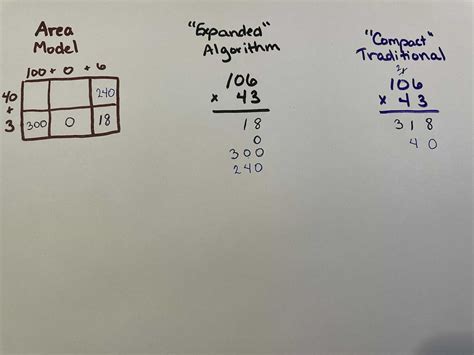 Area
Model
100 + 0 + 6
40 240
+
3 300 0 18
"Expanded"
Algorithm
106
× 43
18
0
300
240
"Compact"
Traditional
106
× 43
318
40